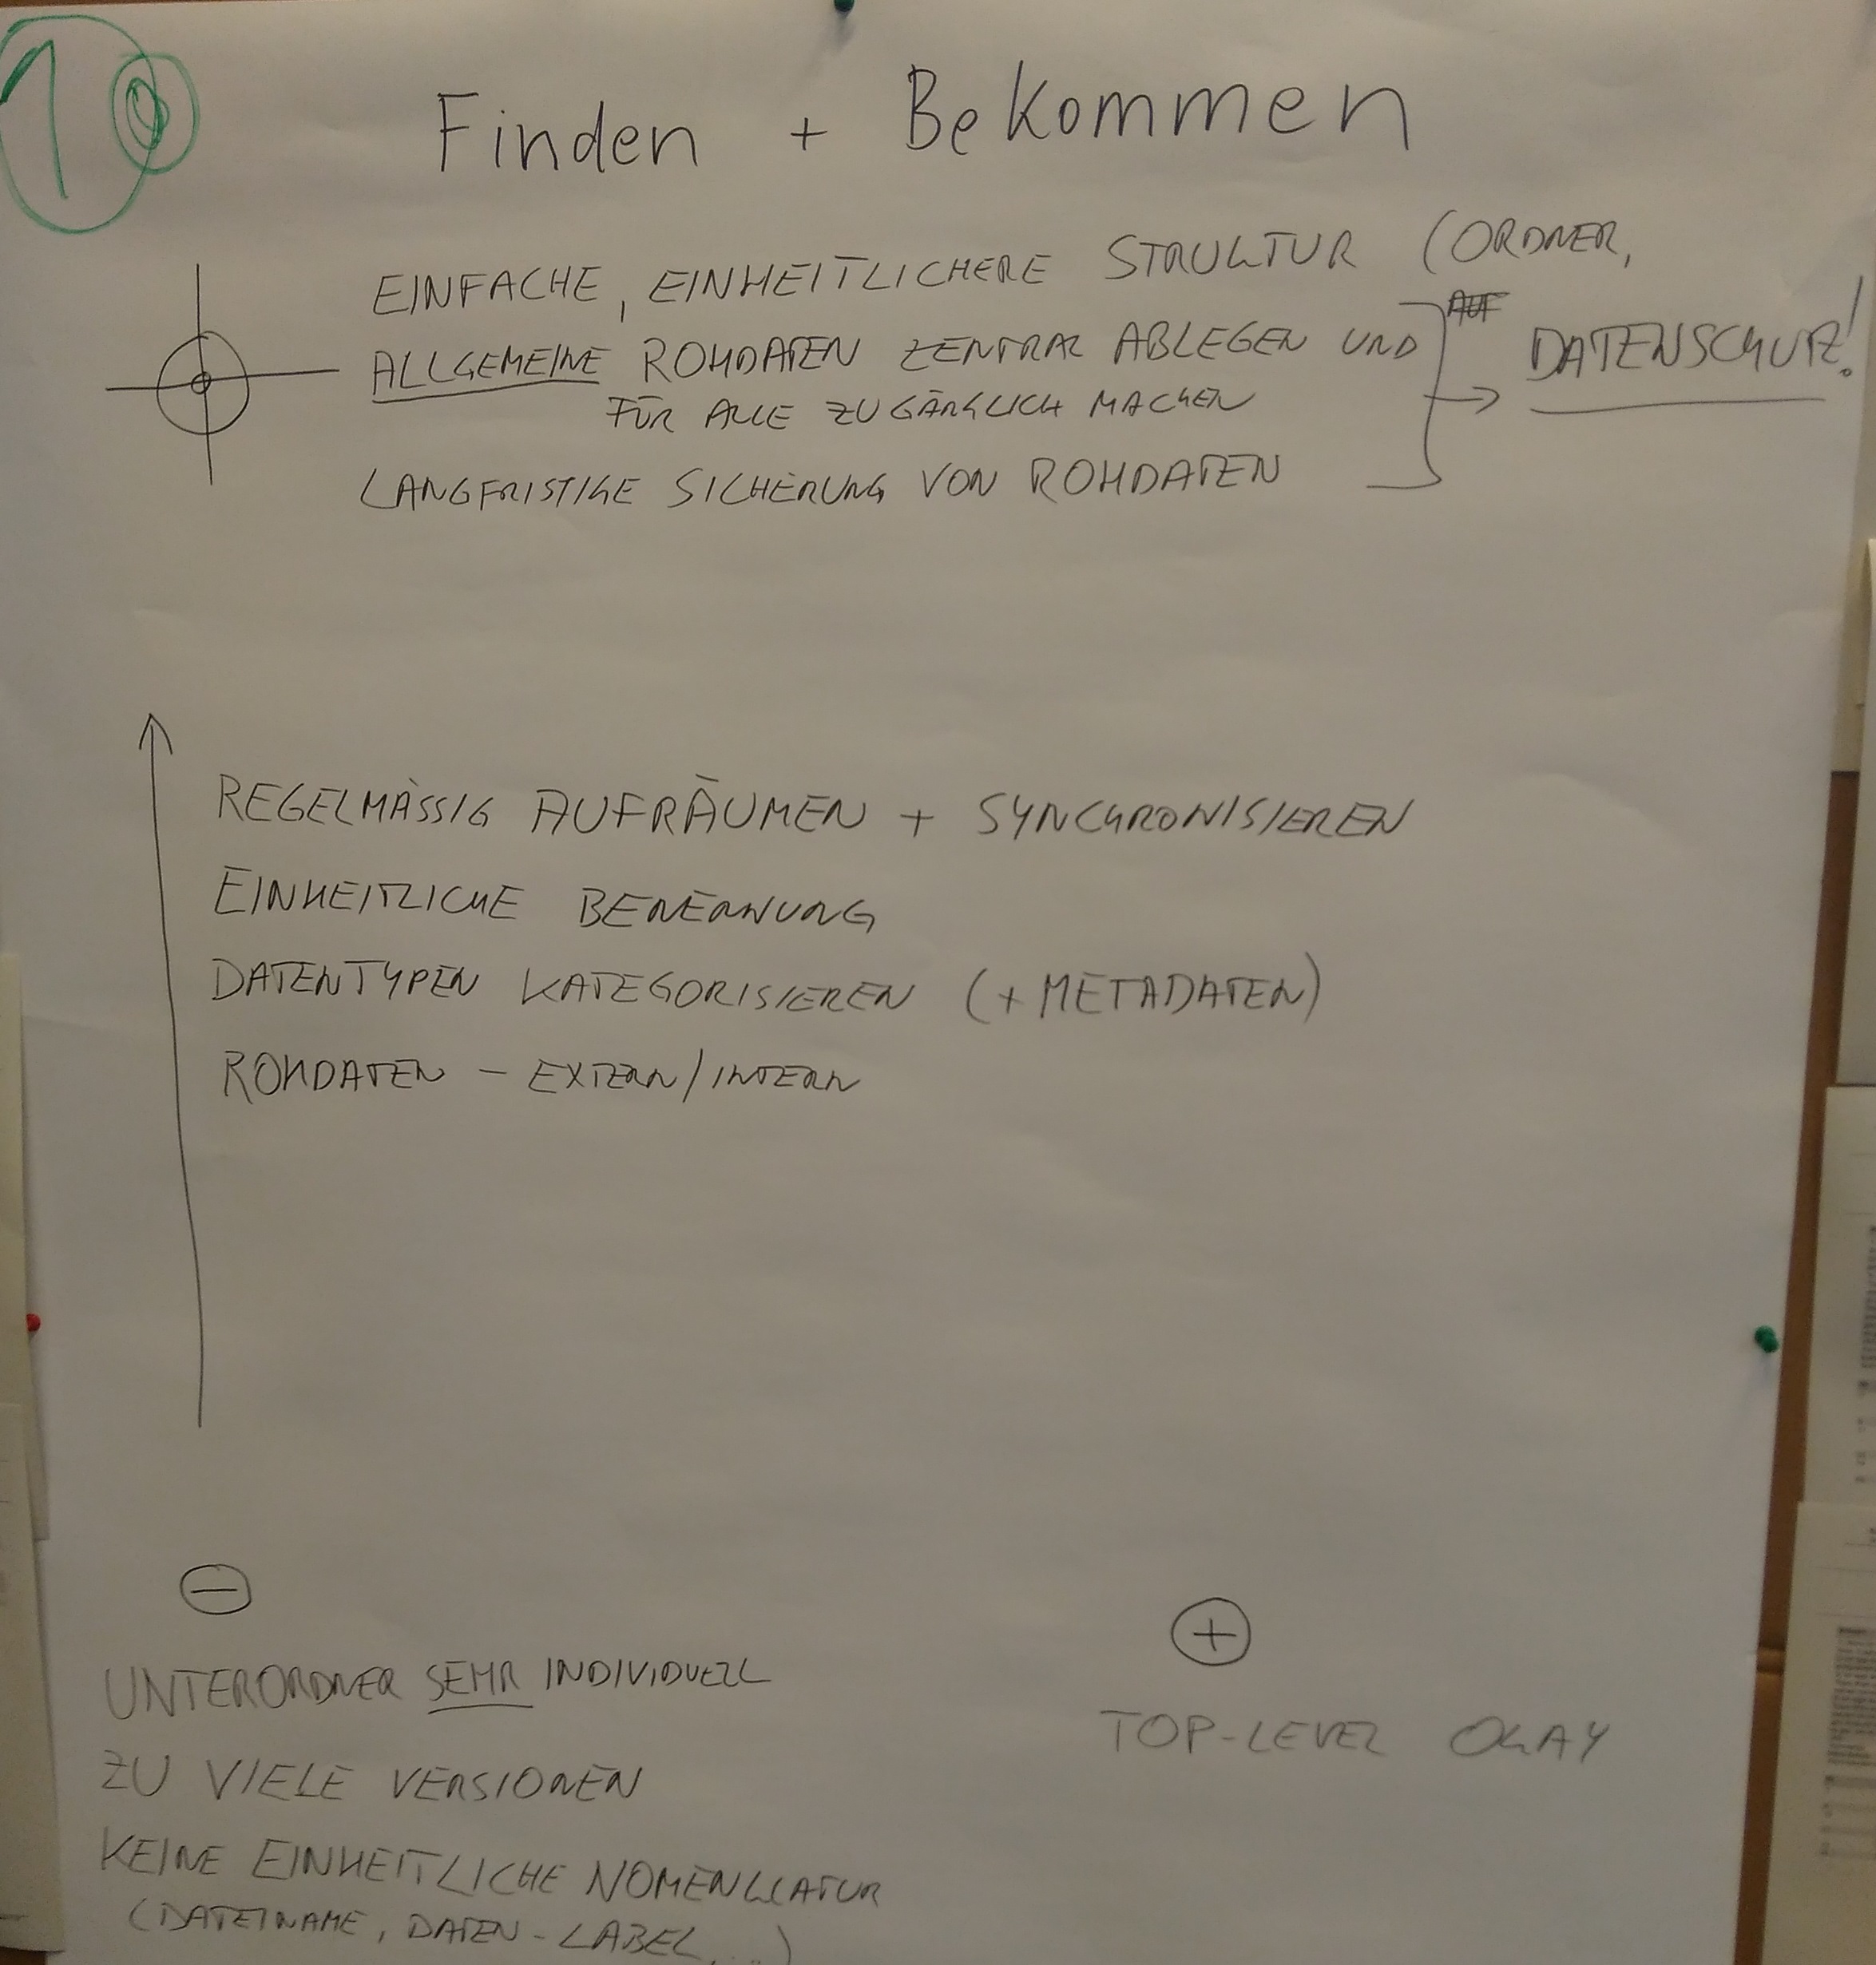 10
Finden + Bekommen
EINFACHE, EINHEITLICHERE STRUKTUR (ORDNER,
ALLGEMEINE ROHDATEN ZENTRAL ABLEGEN UND
FÜR ALLE ZUGÄNGLICH MACHEN
LANGFRISTIGE SICHERUNG VON ROHDATEN
AUF
DATENSCHUTZ!
REGELMÄSSIG AUFRÄUMEN + SYNCHRONISIEREN
EINHEITLICHE BENENNUNG
DATENTYPEN KATEGORISIEREN (+ METADATEN)
ROHDATEN - EXTERN/INTERN
-
UNTERORDNER SEHR INDIVIDUELL
ZU VIELE VERSIONEN
KEINE EINHEITLICHE NOMENKLATUR
(DATEINAME, DATEN-LABEL, ...)
+
TOP-LEVEL OKAY